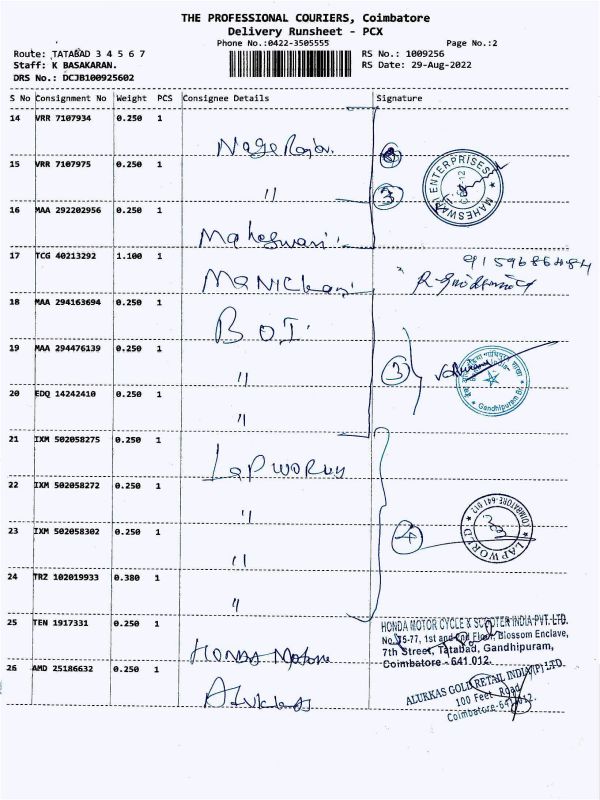 THE PROFESSIONAL COURIERS, Coimbatore
Delivery Runsheet - PCX
Phone No.:0422-3505555
Page No.:2
Route: TATABAD 3 4 5 6 7
RS No.: 1009256
Staff: K BASAKARAN.
RS Date: 29-Aug-2022
DRS No.: DCJB100925602
S No Consignment No Weight PCS Consignee Details Signature
14 VRR 7107934 0.250 1
15 VRR 7107975 0.250 1 "
3
MAHESWARI ENTERPRISES
16 MAA 292202956 0.250 1 Maheswari
17 TCG 40213292 1.100 1
9159686484
18 MAA 294163694 0.250 1 B O I
19 MAA 294476139 0.250 1 "
3
Gandhipuram Br.
20 EDQ 14242410 0.250 1 "
21 IXM 502058275 0.250 1 Lap World
22 IXM 502058272 0.250 1 "
23 IXM 502058302 0.250 1 "
4
LAP WORLD
COIMBATORE-641 012
24 TRZ 102019933 0.380 1 "
25 TEN 1917331 0.250 1 Honda Motor
HONDA MOTOR CYCLE & SCOOTER INDIA PVT. LTD.
No. 75-77, 1st and 2nd Floor, Blossom Enclave,
7th Street, Tatabad, Gandhipuram,
Coimbatore - 641 012.
26 AMD 25186632 0.250 1
ALUKKAS GOLD RETAIL INDIA(P) LTD.
100 Feet Road
Coimbatore-641 012.